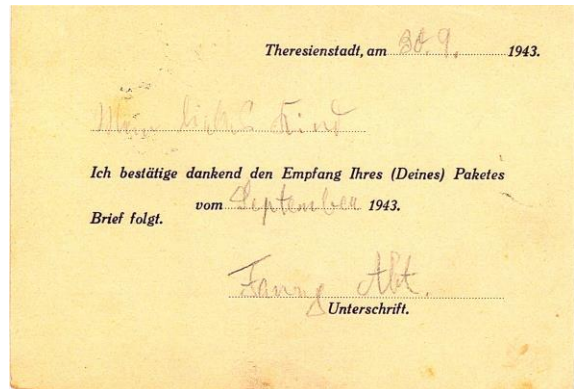 Theresienstadt, am 30. 9. 1943.
Mein liebes Kind
Ich bestätige dankend den Empfang Ihres (Deines) Paketes
vom September 1943.
Brief folgt.
Fanny Abt.
Unterschrift.